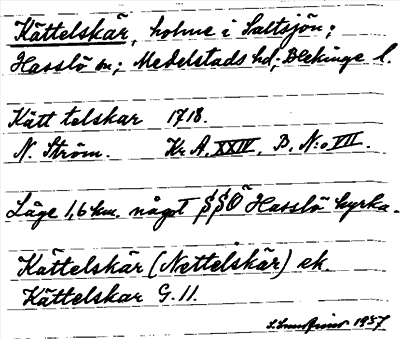 Kättelskär, holme i Saltsjön;
Hasslö sn; Medelstads hd; Blekinge l.
Kättelskar 1718.
N. Ström. Kr A. XXIV. B. N:o VII.
Läge 1,6 km. något SSÖ Hasslö kyrka.
Kättelskär (Nettelskär) ek.
Kättelskar G. 11.
1957